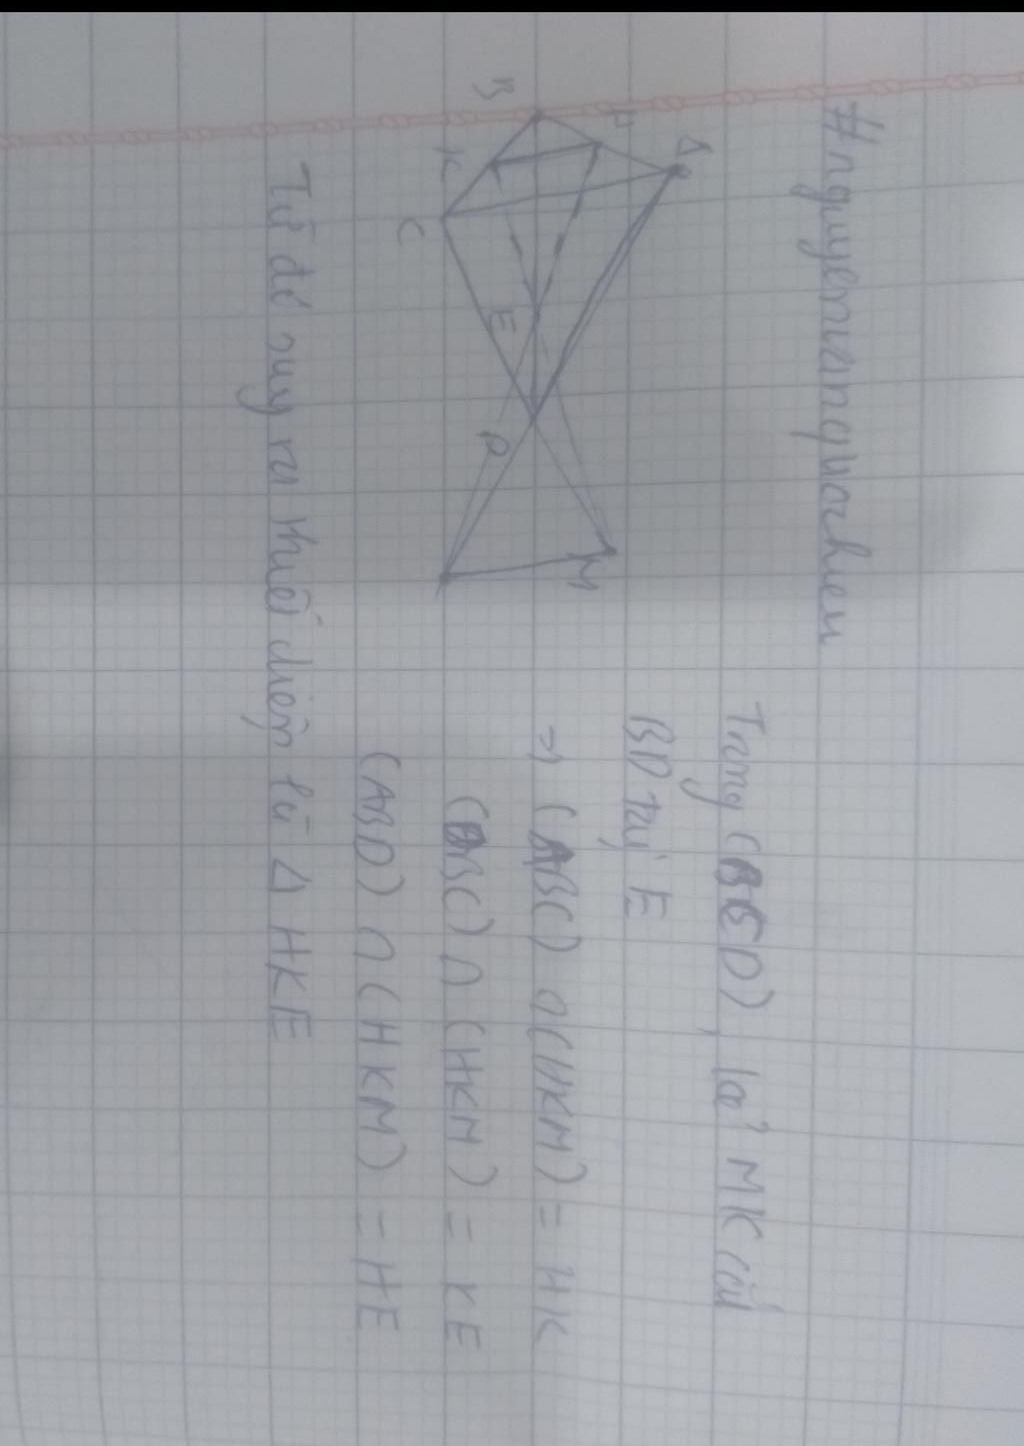 #nguyentranquachieu
B
H
A
K
C
E
D
M
Trong (BCD), ta có MK cắt
BD tại E
=> (ABC) ∩ (HKM) = HK
(DBC) ∩ (HKM) = KE
(ABD) ∩ (HKM) = HE
Từ đó suy ra thiết diện là Δ HKE